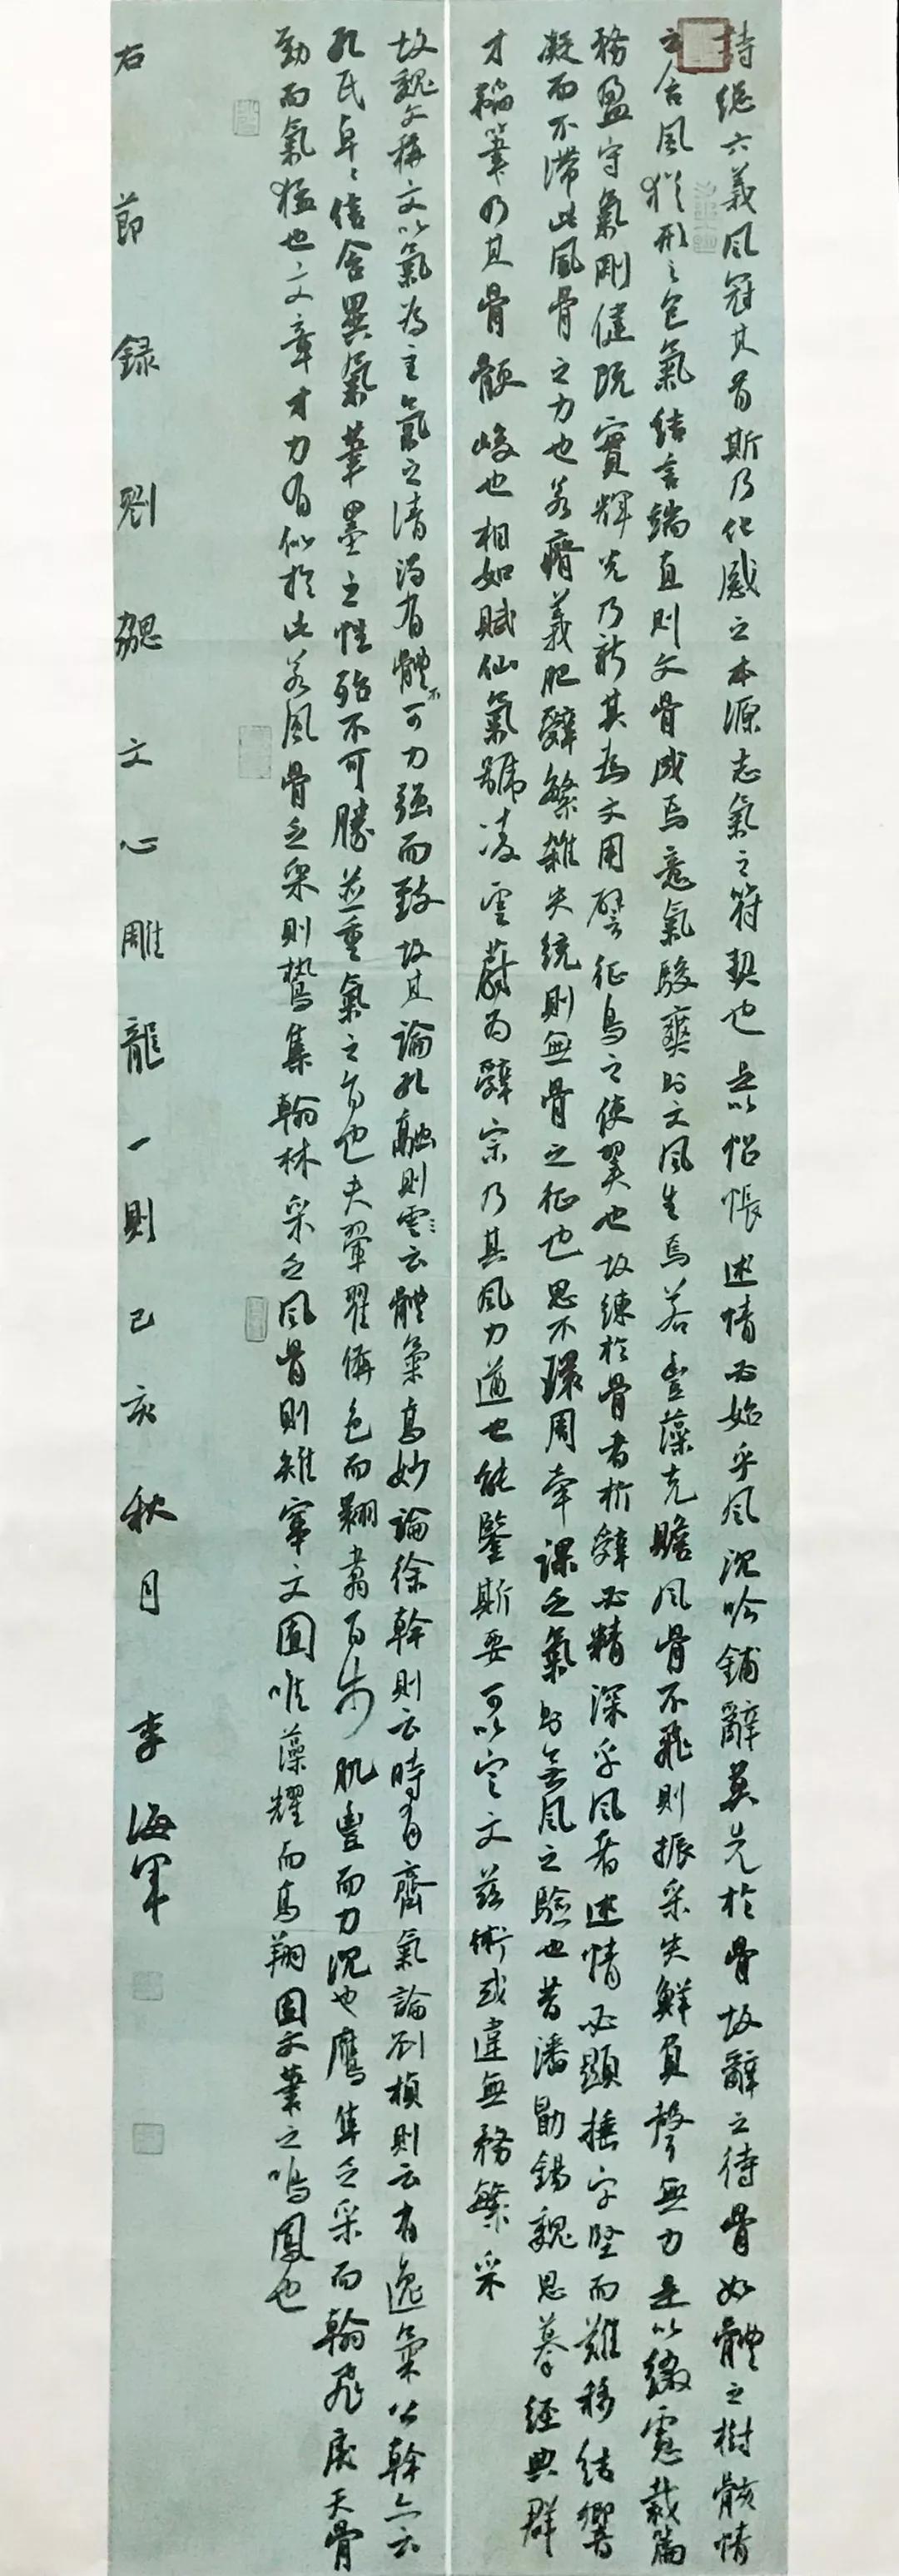 詩總六義風冠其首斯乃化感之本源志氣之符契也是以怊悵述情必始乎風沈吟鋪辭莫先於骨故辭之待骨如體之樹骸情
之含風猶形之包氣結言端直則文骨成焉意氣駿爽則文風生焉若豐藻克贍風骨不飛則振采失鮮負聲無力是以綴慮裁篇
務盈守氣剛健既實輝光乃新其為文用譬征鳥之使翼也故練於骨者析辭必精深乎風者述情必顯捶字堅而難移結響
凝而不滯此風骨之力也若瘠義肥辭繁雜失統則無骨之征也思不環周牽課乏氣則無風之驗也昔潘勖錫魏思摹經典群
才韜筆乃其骨骾峻也相如賦仙氣號凌雲蔚為辭宗乃其風力遒也能鑒斯要可以定文茲術或違無務繁采
故魏文稱文以氣為主氣之清濁有體不可力強而致故其論孔融則雲云體氣高妙論徐幹則云時有齊氣論劉楨則云有逸氣公幹亦云
孔氏卓卓信含異氣筆墨之性殆不可勝並重氣之旨也夫翬翟備色而翾翥百步肌豐而力沈也鷹隼乏采而翰飛戾天骨
勁而氣猛也文章才力有似於此若風骨乏采則鷙集翰林采乏風骨則雉竄文囿唯藻耀而高翔固文筆之鳴鳳也
右節錄劉勰文心雕龍一則己亥秋月李海軍